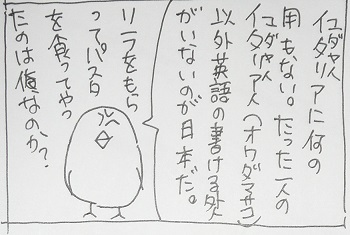 ユダヤ人
イタリアに何の
用もない。たった一人の
ユダヤ人
イタリア人(オウダマサコ)
以外英語の書ける外
がいないのが日本だ。
リラをもら
ってパスタ
を食ってやっ
たのは俺なのか?